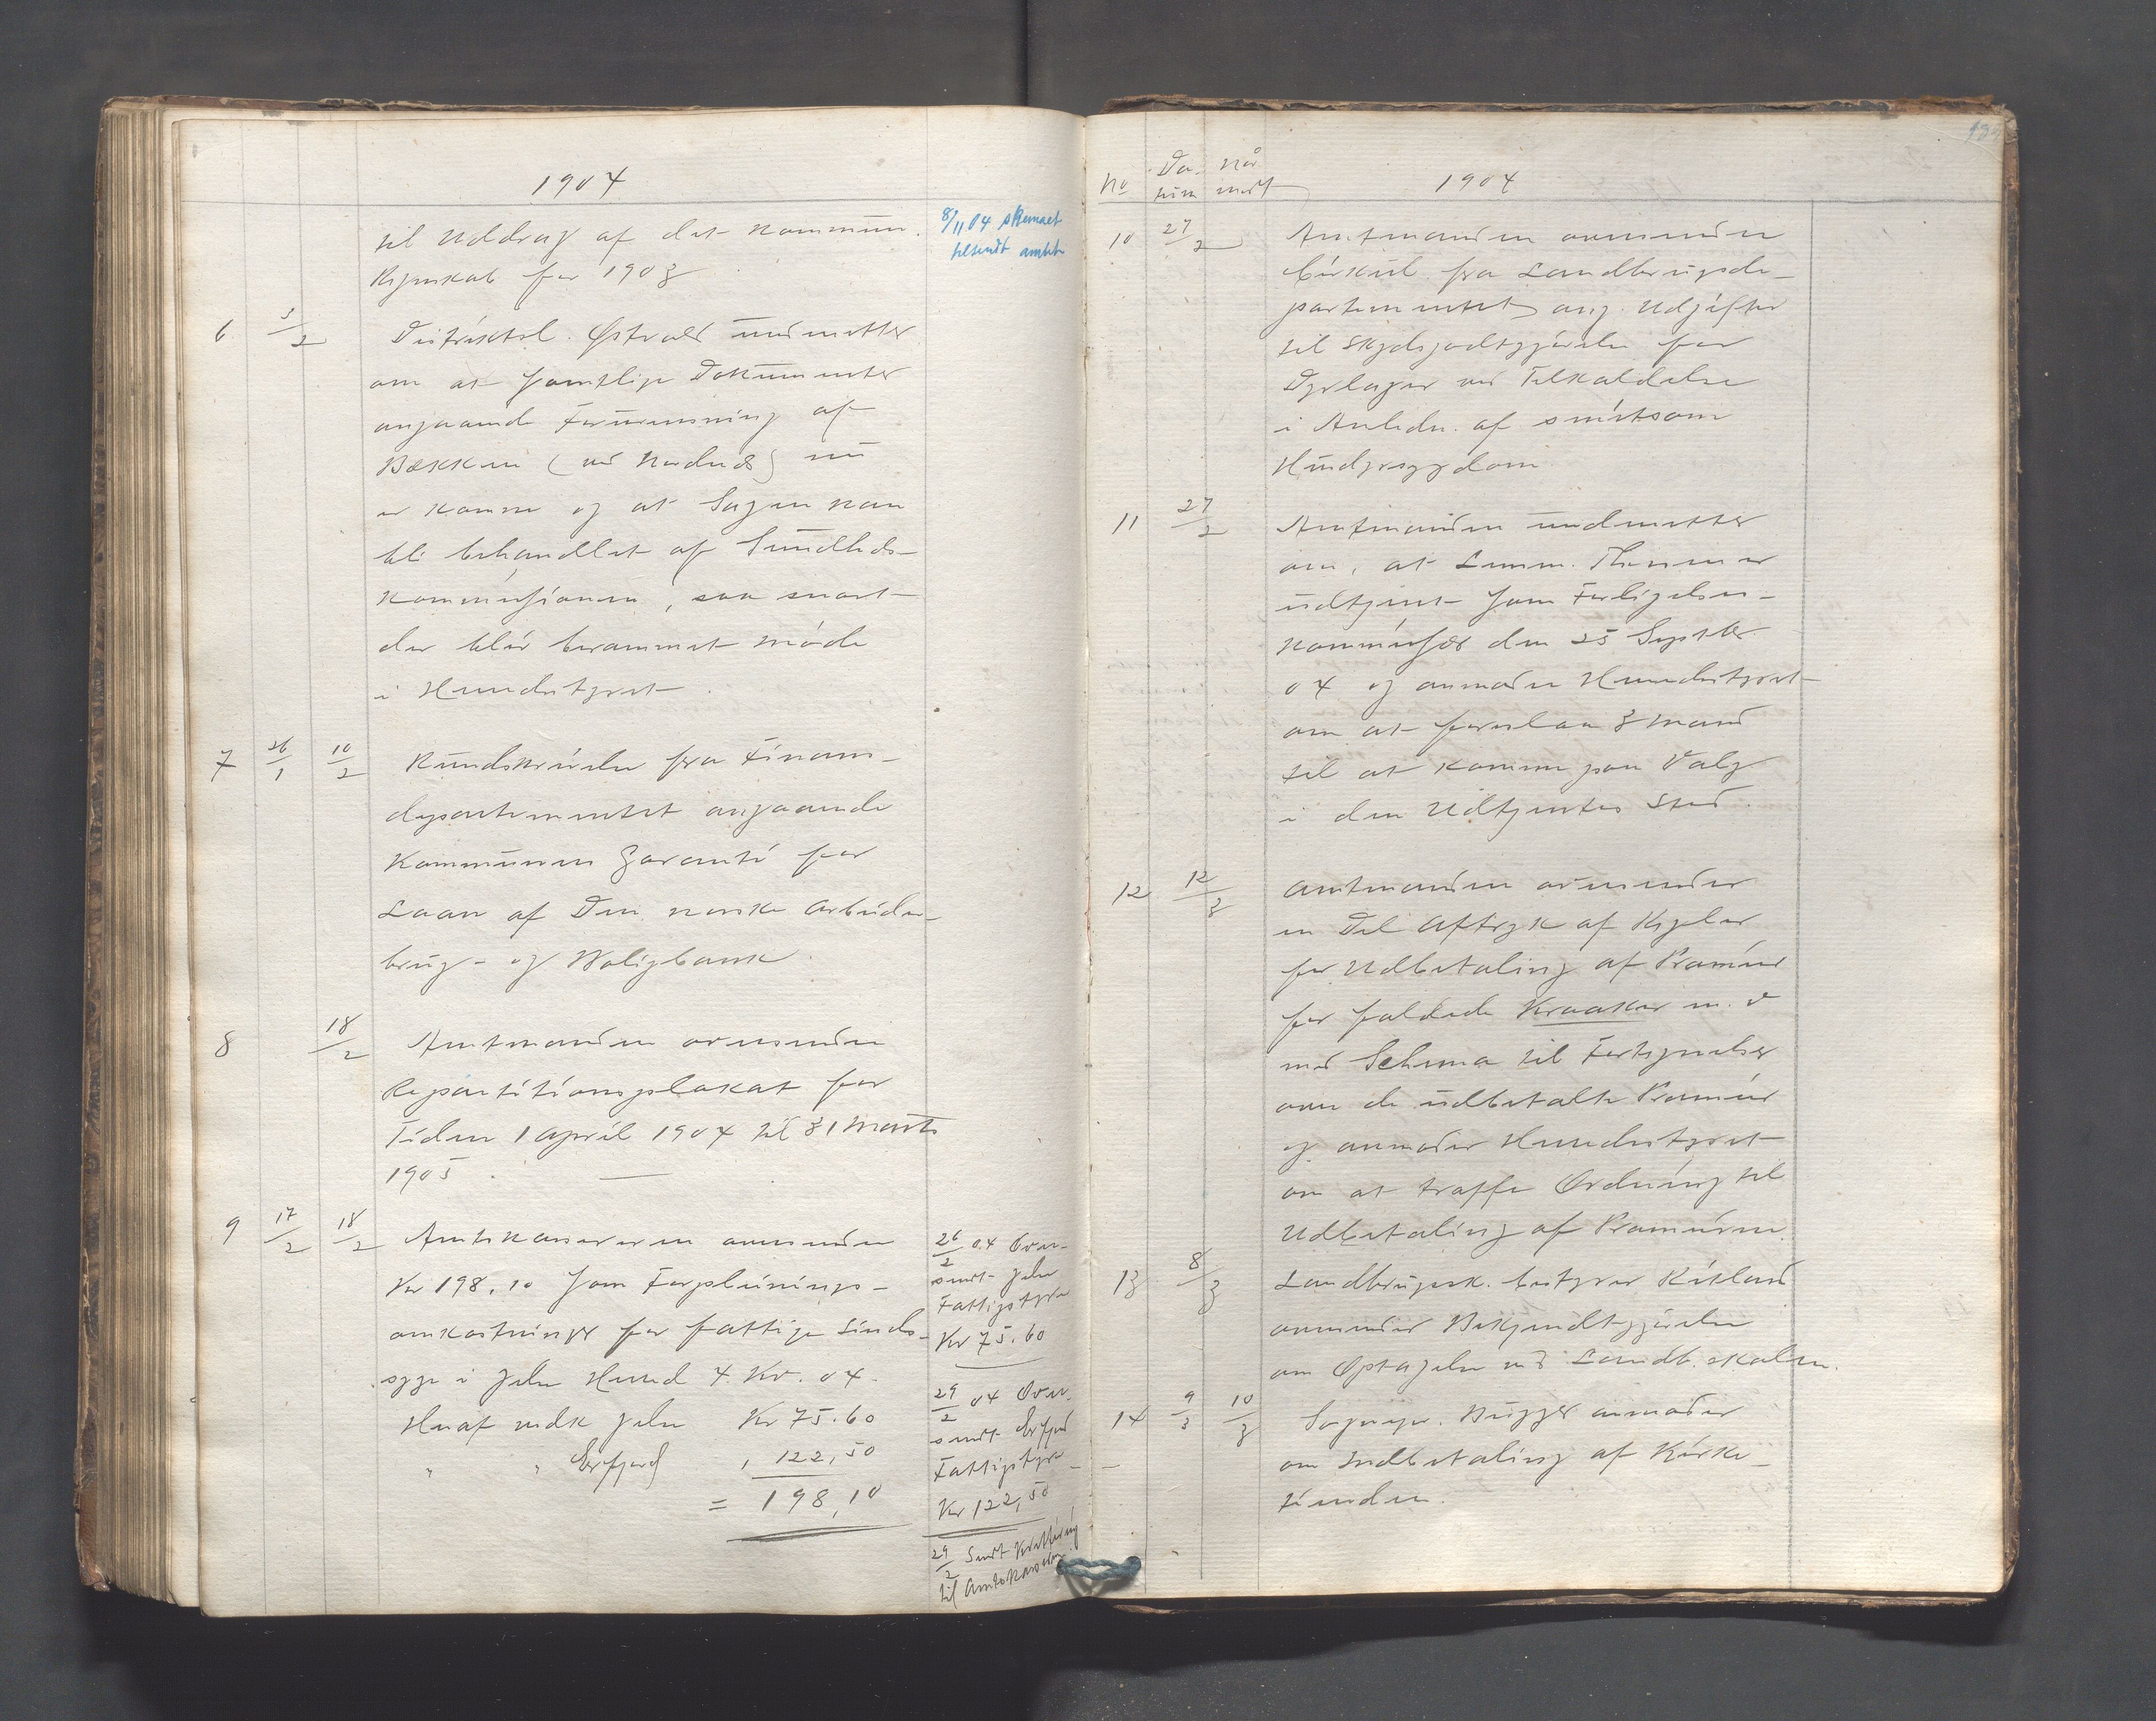 1904
til Uddrag af det kommun.
Regnskab for 1903
8/11 04 skemaet
tilsendt amtet
6 3/2 Distriktsl. Østvold underretter
om at samtlige Dokumenter
angaaende Forurensning af
Bækken (ved ) nu
er komne og at Sagen kan
bli behandlet af Sundheds-
kommissionen, saa snart
der blir berammet møde
i Herredstyret
7 26/1 10/2 Rundskrivelse fra Finans-
departementet angaaende
Kommunens Garanti for
Laan af Den norske Arbeider-
brug- og Boligbank.
8 18/2 Amtmanden oversender
Repartitionsplakat for
Tiden 1 April 1904 til 31 Marts
1905.
9 17/2 18/2 Amtskassereren oversender
Kr 198,10 som Forpleinings-
omkostninger for fattige Sinds-
syge i Jelse Herred 4. Kv. 04.
Heraf vedk Jelse Kr 75.60
" " Erfjord " 122,50
= 198,10
26/2 04 Over-
sendt Jelse
Fattigstyre
Kr 75.60
29/2 04 Over-
sendt Erfjord
Fattigstyre
Kr 122,50
29/2 Sendt Kvittering
til Amtskasseren
No Da- tum Når mødt
1904
10 27/2 Amtmanden oversender
Cirkul. fra Landbrugsde-
partementet ang. Udgifter
til Skydsgodtgjørelse for
Dyrlæger ved Tilkaldelse
i Anledn. af smitsom
Husdyrsygdom
11 27/2 Amtmanden underretter
om, at Lensm. er
udtjent som Forligelses-
kommissær den 25 Septbr.
04 og anmoder Herredstyret
om at foreslaa 3 Mand
til at komme paa Valg
i den Udtjentes Sted.
12 12/3 Amtmanden oversender
en Del Aftryk af Regler
for Udbetaling af Præmier
for fældede Kraaker m. v
med Schema til Fortegnelser
over de udbetalte Præmier
og anmoder Herredstyret
om at træffe Ordning til
Udbetaling af Præmierne.
13 8/3 Landbrugssk. bestyrer
oversender Bekjendtgjørelse
om Optagelse ved Landb. skolen.
14 9/3 10/3 Sognepr. Bugge anmoder
om Indbetaling af Kirke-
tienden.